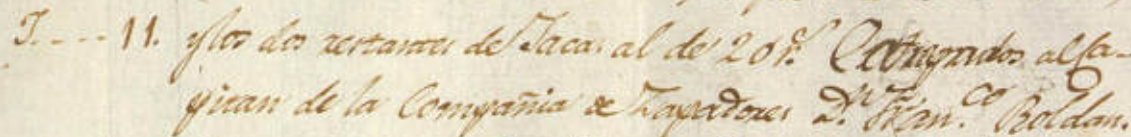 J. - - - 11. y los dos restantes de Jacas al de 20 r.s Entregados al Ca-
pitan de la Compañia de Zapadores D.n Fran.co Roldan.